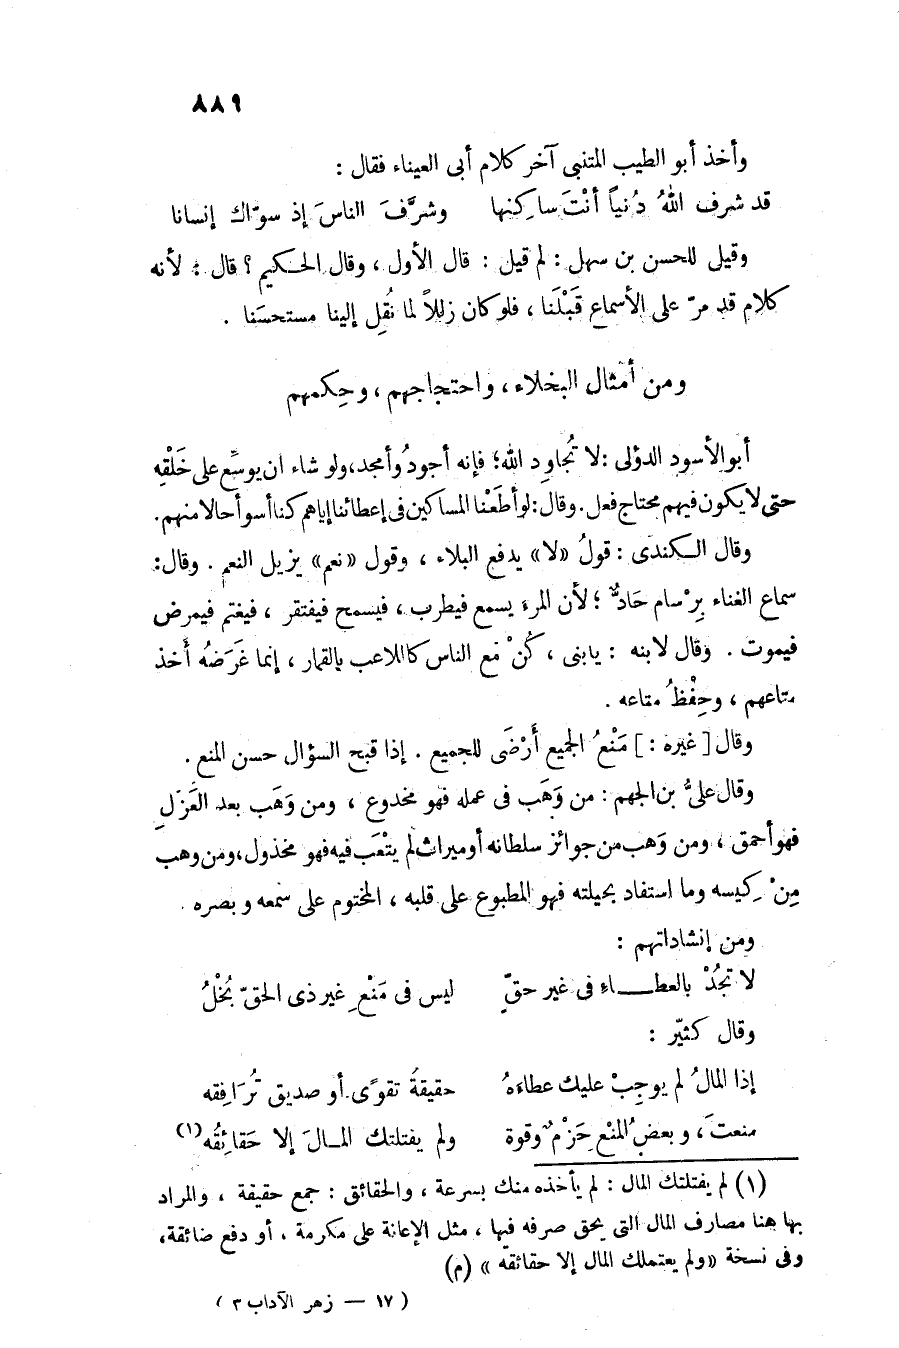 ٨٨٩
وأخذ أبو الطيب المتنبى آخر كلام أبى العيناء فقال :
قد شرف اللهُ دُنياً أنْتَ ساكِنها وشرَّفَ الناسَ إذ سوّاك إنسانا
وقيلى للحسن بن سهل : لم قيل : قال الأول ، وقال الحكيم ؟ قال : لأنه
كلام قد مرّ على الأسماع قَبْلَنا ، فلو كان زللاً لما نُقِل إلينا مستحسَنا .
ومن أمثال البخلاء ، واحتجاجهم ، وحِكمهم
أبو الأسود الدؤلى : لا تُجاوِد الله؛ فإنه أجودُ وأمجد، ولو شاء ان يوسِّع على خَلْقِه
حتى لا يكون فيهم محتاج فعل. وقال: لو أطَعْنا المساكين فى إعطائنا إياهم كنا أسوأ حالا منهم.
وقال الكندى : قولُ «لا» يدفع البلاء ، وقول «نعم» يزيل النعم . وقال:
سماع الغناء بِرْسام حَادٌّ ؛ لأن المرءَ يسمع فيطرب ، فيسمح فيفتقر ، فيغتم فيمرض
فيموت . وقال لابنه : يابنى ، كُنْ مَع الناس كاللاعب بالقمار ، إنما غَرَضهُ أَخذ
متاعهم ، وحِفْظُ متاعه .
وقال [ غيره : ] مَنْعُ الجميع أَرْضَى للجميع . إذا قبح السؤال حسن المنع .
وقال علىُّ بن الجهم : من وَهَب فى عمله فهو مخدوع ، ومن وَهَب بعد العَزْلِ
فهو أحمق ، ومن وَهب من جوائز سلطانه أو ميراث لم يتْعَب فيه فهو مخذول، ومن وهب
مِنْ كِيسه وما استفاد بحيلته فهو المطبوع على قلبه ، المختوم على سمعه وبصره .
ومن إنشاداتهم :
لا تجُدْ بالعطـــاءِ فى غير حقٍّ ليس فى مَنْعِ غير ذى الحقّ بُخْلُ
وقال كثيّر :
إذا المالُ لم يوجِبْ عليك عطاءَهُ حقيقةُ تقوًى أو صديق تُرَافِقه
منعتَ ، وبعضُ المنْعِ حَزْمٌ وقوة ولم يفتلتك المـالَ إلا حَقائِقُه (١)
(١) لم يفتلتك المال : لم يأخذه منك بسرعة ، والحقائق : جمع حقيقة ، والمراد
بها هنا مصارف المال التى يحق صرفه فيها ، مثل الإعانة على مكرمة ، أو دفع ضائقة،
وفى نسخة «ولم يعتملك المال إلا حقائقه » (م)
( ١٧ — زهر الآداب ٣ )